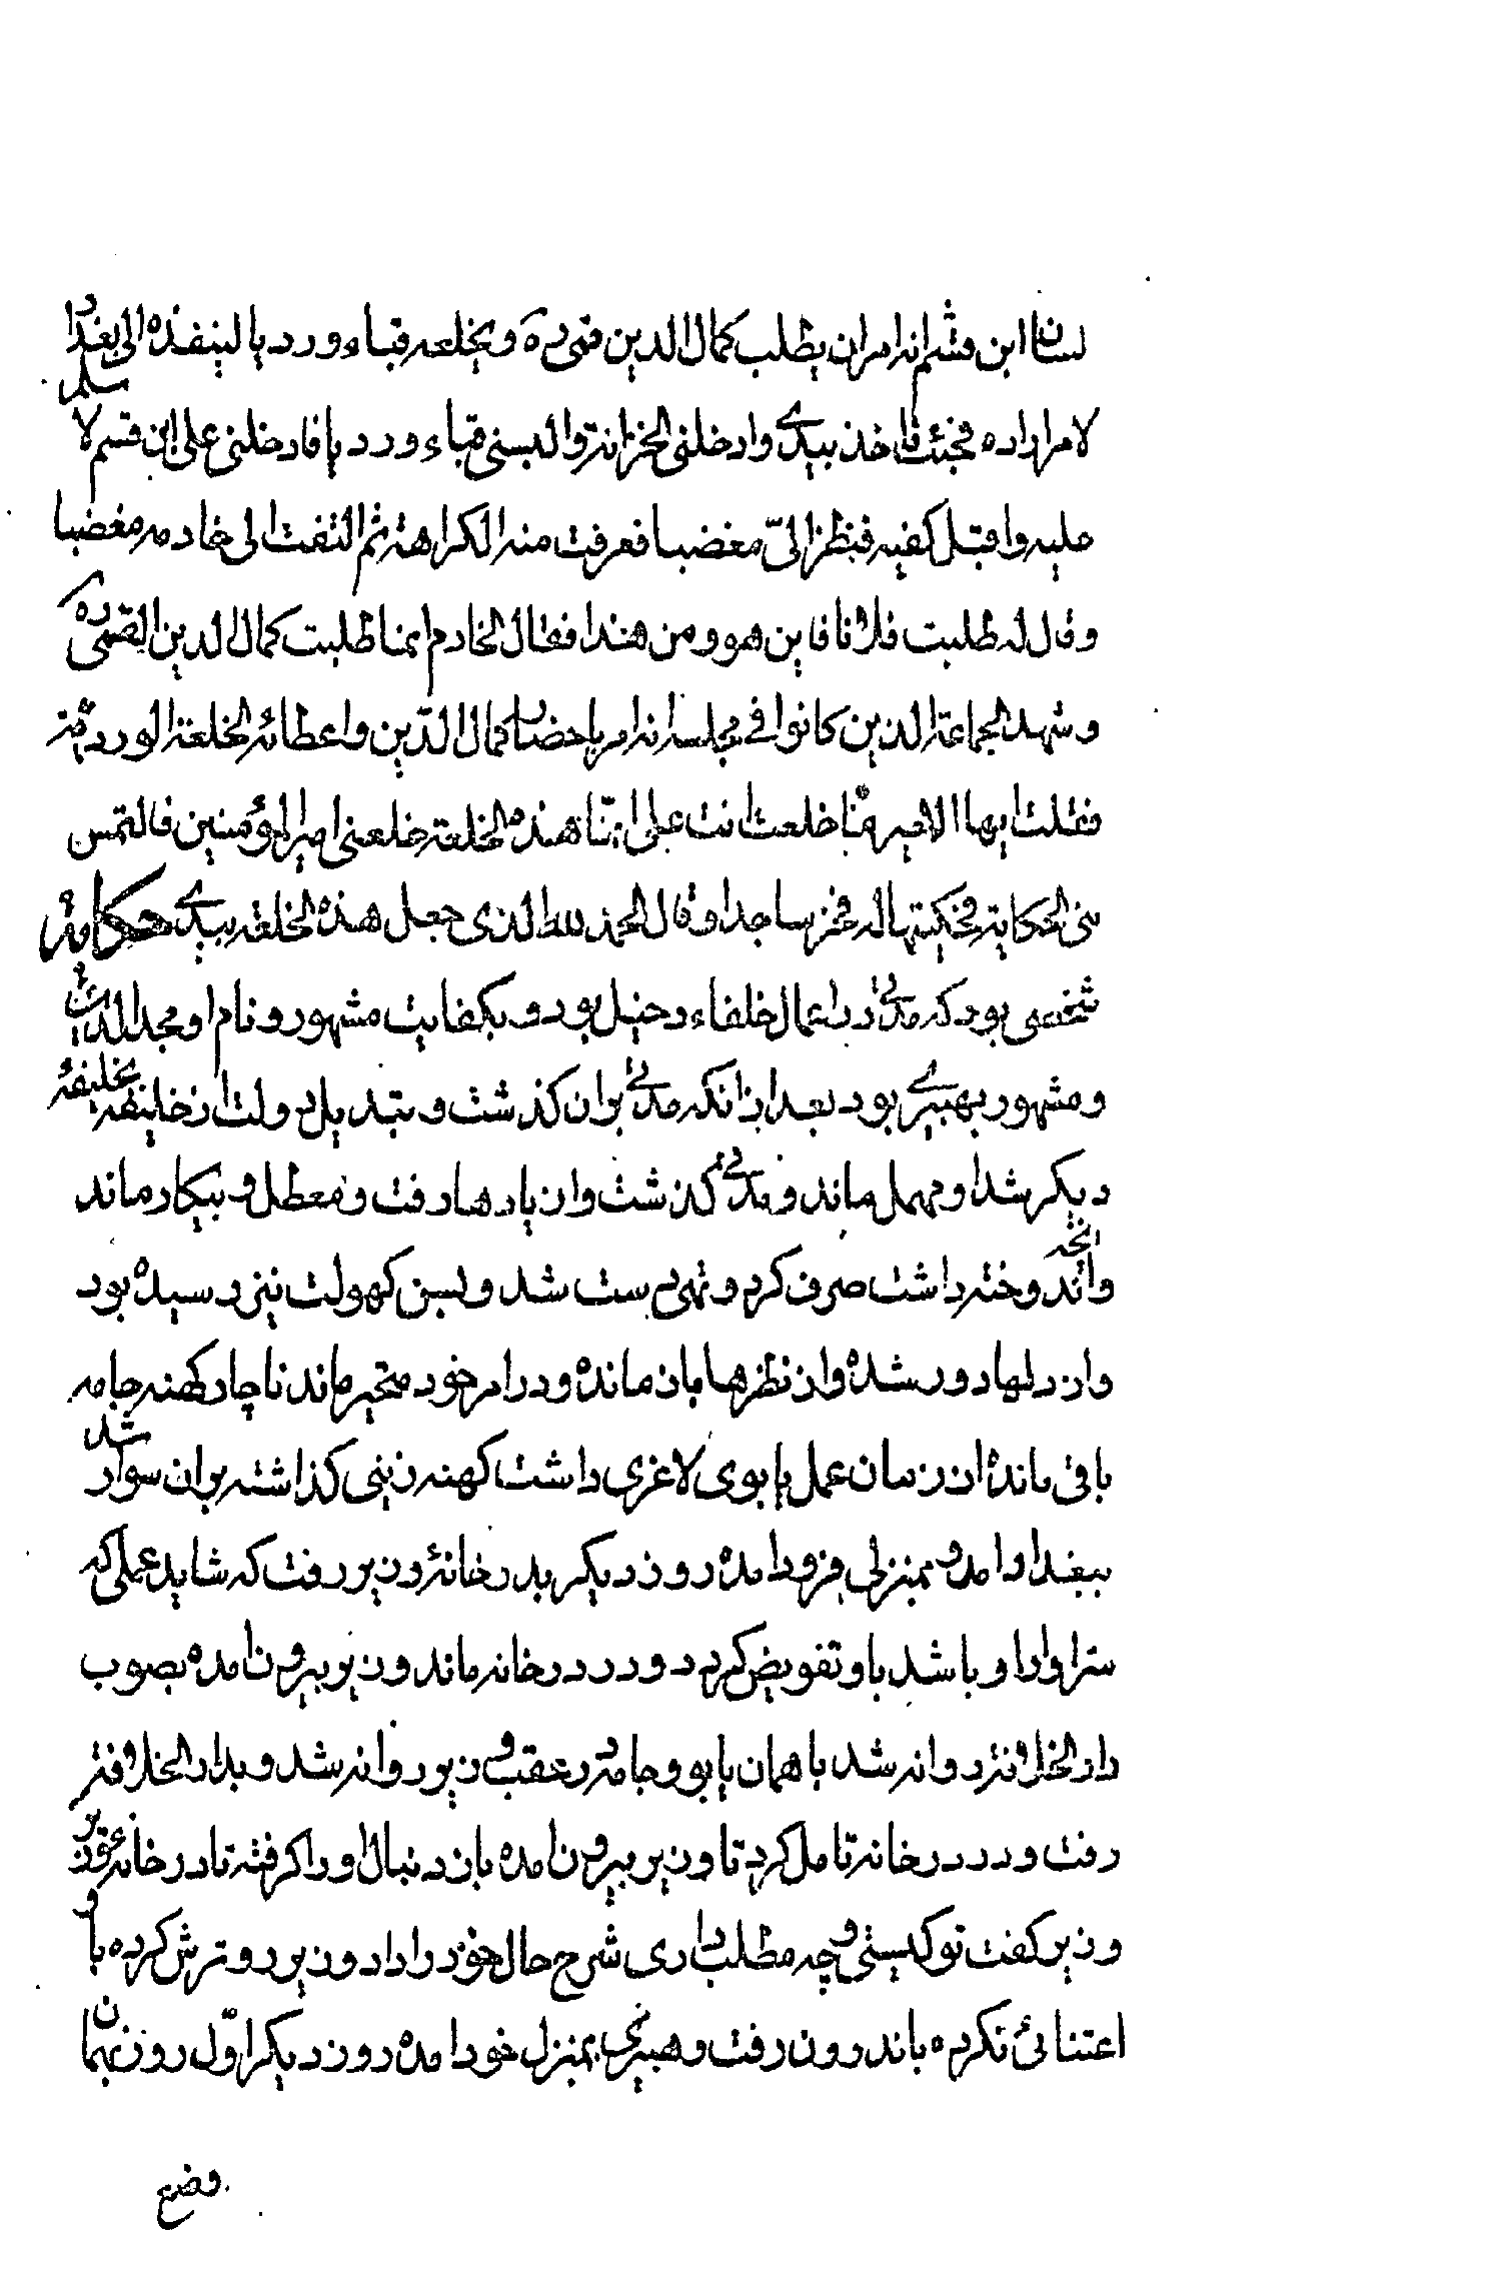 لسان ابن قشم انه امر ان یطلب کمال الدین قمی ره ویخلعه قباء وردیا لینفذه الی بغداد
لامر اراده فجئت فاخذ بیدی وادخلنی الخزانة والبسنی قباء وردیا فادخلنی علی ابن قسم لاسلم
علیه واقبل کفیه فنظر الیّ مغضبا فعرفت منه الکراهة ثم التفت الی خادمه مغضبا
وقال له طلبت فلانا فاین هو ومن هذا فقال الخادم انما طلبت کمال الدین القمی ره
وشهد الجماعة الذین کانوا فی مجلسه انه امر باحضار کمال الدّین واعطائه الخلعة الوردیّة
فقلت ایها الامیر ما خلعت انت علی انّما هذه الخلعة خلعنی امیر المؤمنین فالتمس
منی الحکایة فحکیتها له فخر ساجدا وقال الحمد لله الذی جعل هذه الخلعة بیدی حکایة
شخصی بود که مدتی در اعمال خلفاء دخیل بود و بکفایت مشهور و نام او مجد الدین
و مشهور بهبیری بود بعد از انکه مدتی بران کذشت و بتدیل دولت از خلیفه بخلیفهٔ
دیکر شد او مهمل ماند و مدتی کذشت و ان یادها رفت و معطل و بیکار ماند
وانچه اندوخته داشت صرف کرد و تهی دست شد و بسن کهولت نیز رسیده بود
واز دلها دور شده واز نظرها باز مانده و در امر خود متحیر ماند ناچار کهنه جامه
باقی مانده از زمان عمل یابوی لاغری داشت کهنه زینی کذاشته بران سوار شد
ببغداد امد و بمنزلی فرود امده روز دیکر بدر خانهٔ وزیر رفت که شاید عملی که
سزاوار او باشد باو تفویض کرد دو در در خانه ماند وزیر بیرون امده بصوب
دار الخلافة روانه شد با همان یابو و جامه در عقب وزیر روانه شد و بدار الخلافة
رفت و در در خانه تامل کرد تا وزیر بیرون امده باز دنبال او را کرفته تا در خانهٔ وزیر
وزیر کفت تو کیستی و چه مطلب داری شرح حال خود را داد وزیر رو ترش کرده باو
اعتنائی نکرده باندرون رفت و هبیری بمنزل خود امده روز دیکر اوّل روز بهمان
وضع